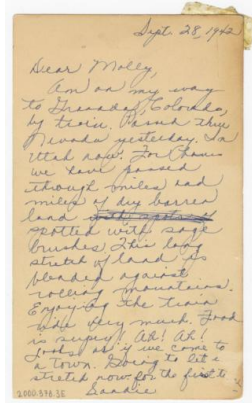 Sept. 28, 1942
Dear Molly,
Am on my way
to Granada, Colorado,
by train. Passed thru
Nevada yesterday. In
Utah now. For hours
we have passed
through miles and
miles of dry barren
land
spotted with sage
brushes. This long
stretch of land is
blended against
rolling mountains.
Enjoying the train
ride very much. Food
is super! Ah! Ah!
Looks as if we come to
a town. Going to let
stretch now for the first
Sandie
2000.398.35